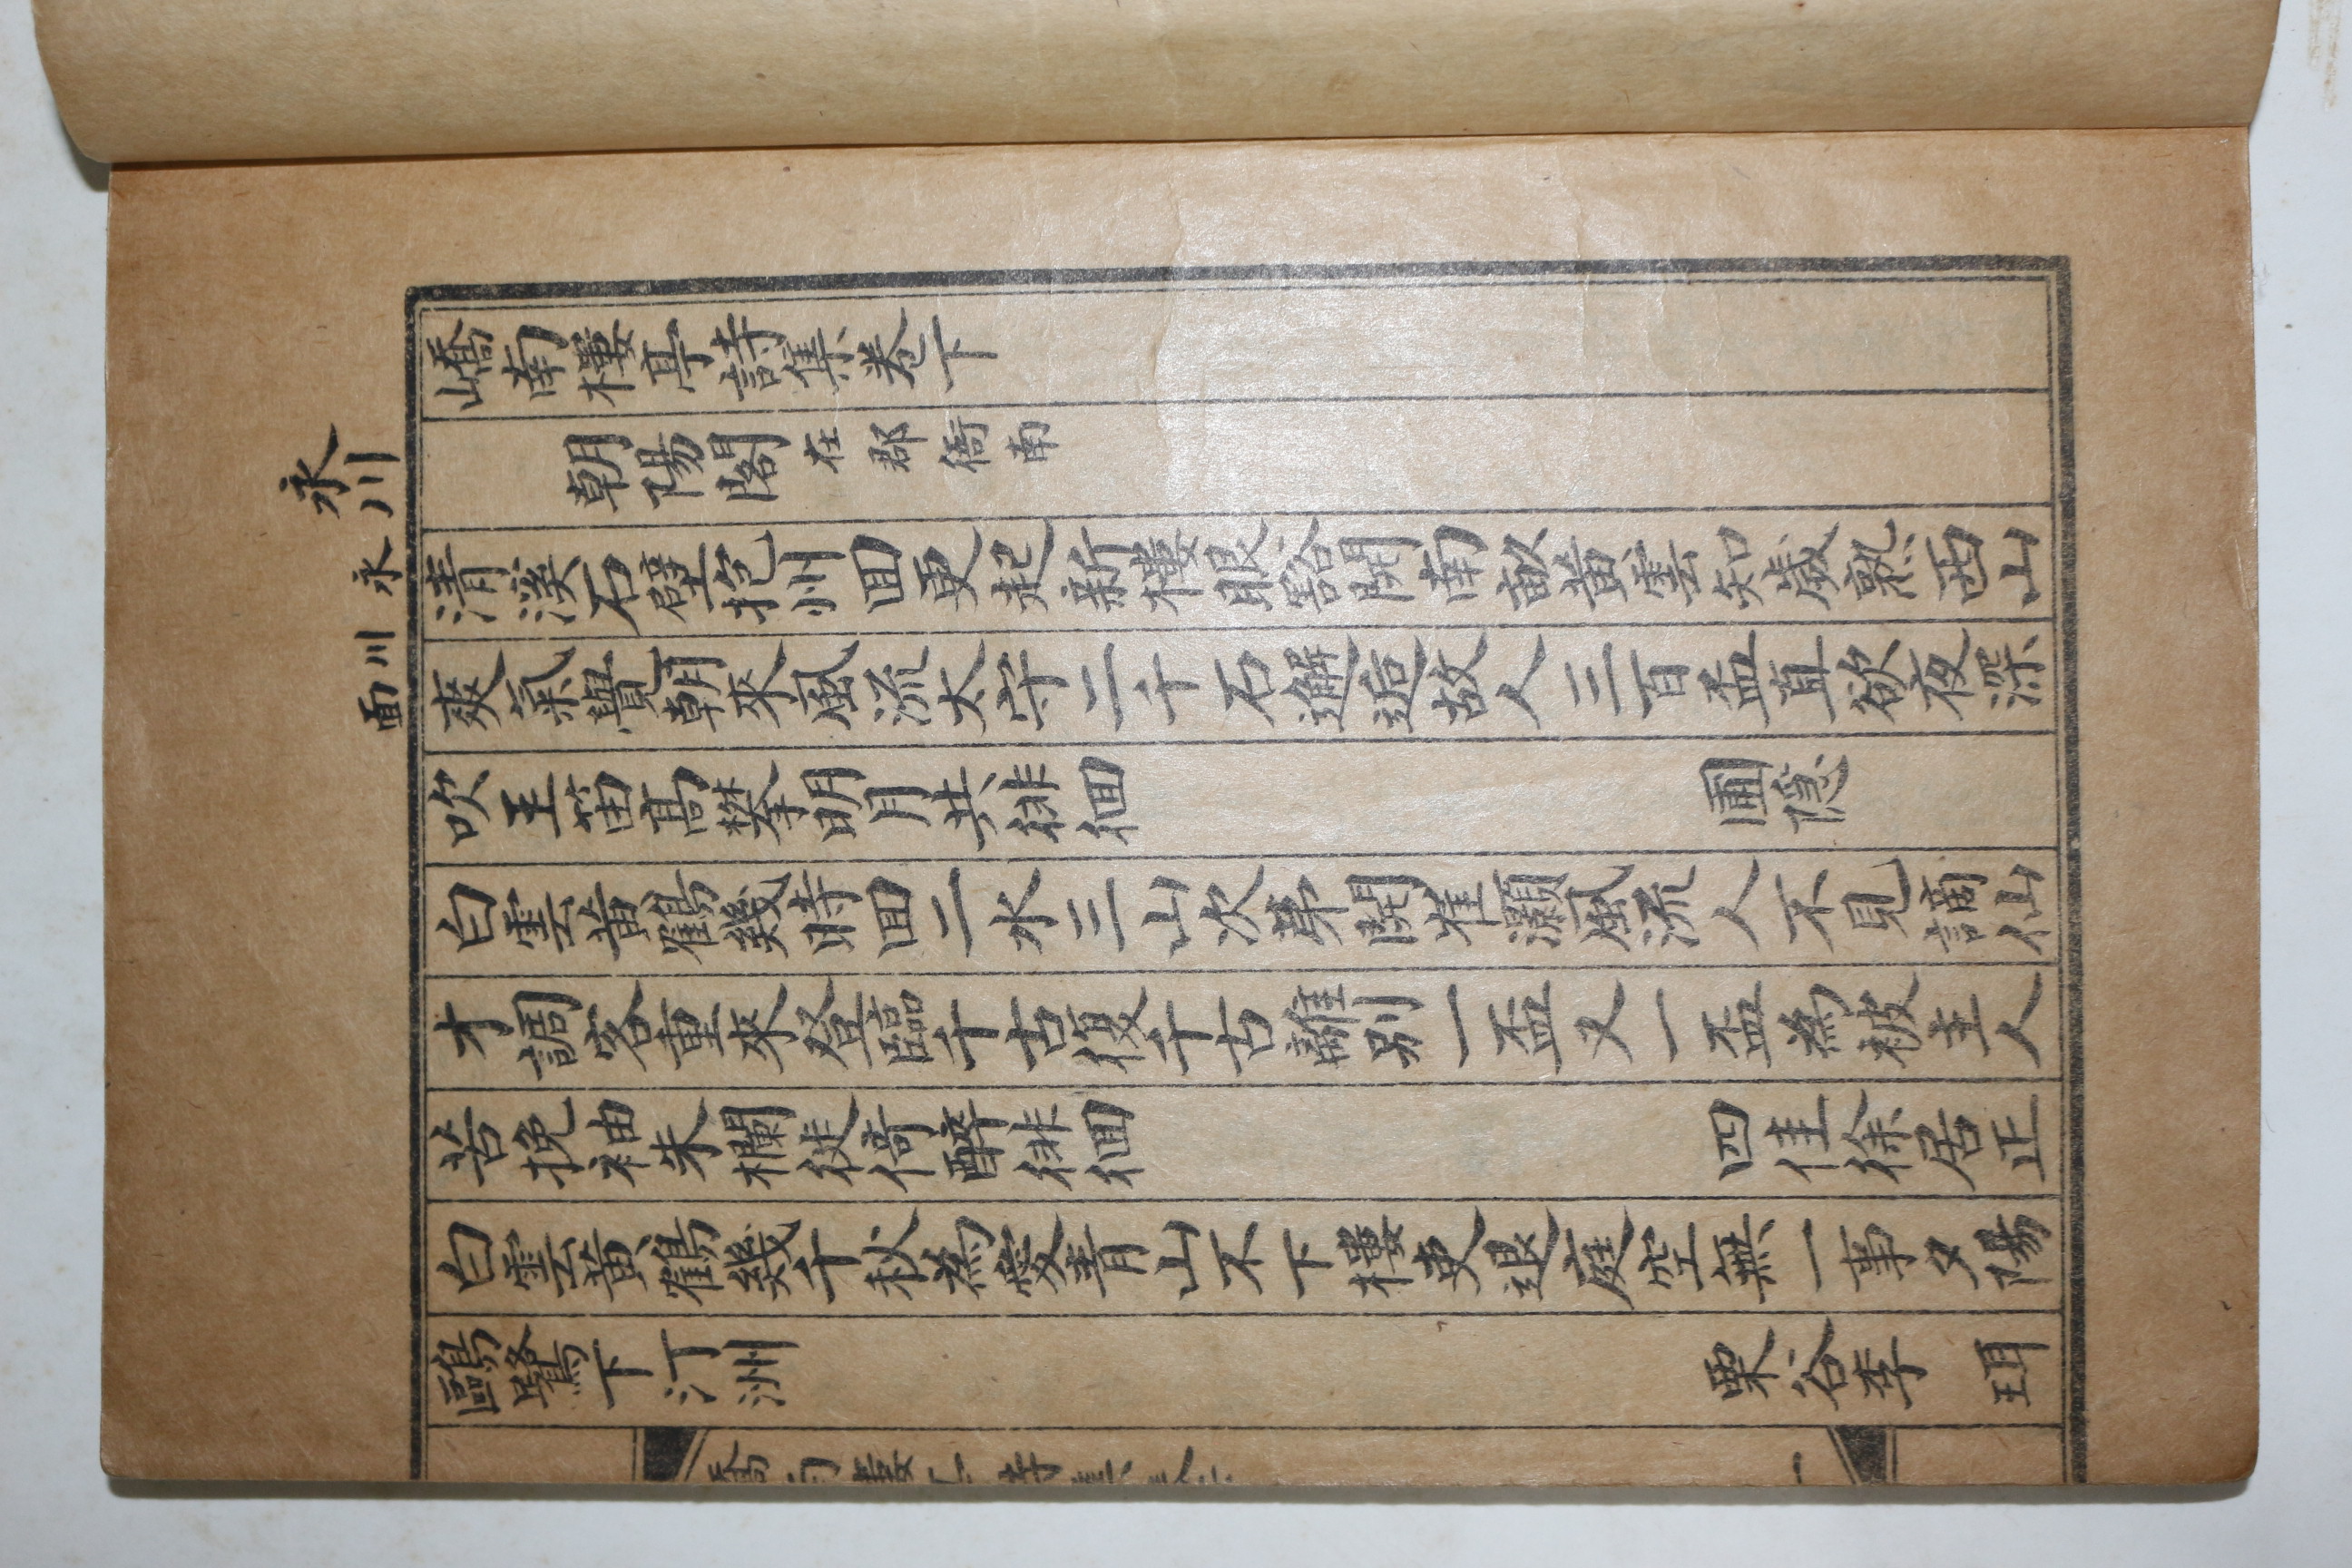 永川
永川面
嶠南樓亭詩集卷下
朝陽閣在郡衙南
清溪石壁抱州回更起新樓眼豁開南畝黃雲知歲熟西山
爽氣覺朝來風流太守二千石邂逅故人三百盃直欲夜深
吹玉笛高攀明月共徘徊
圃隱
白雲黃鶴幾時回二水三山次第開崔灝風流人不見謫仙
才調客重來登臨千古復千古離別一盃又一盃為被主人
苦挽袖朱欄徙倚醉徘徊
四佳徐居正
白雲黃鶴幾千秋為愛青山不下樓吏退庭空無一事夕陽
鷗鷺下汀洲
栗谷李珥